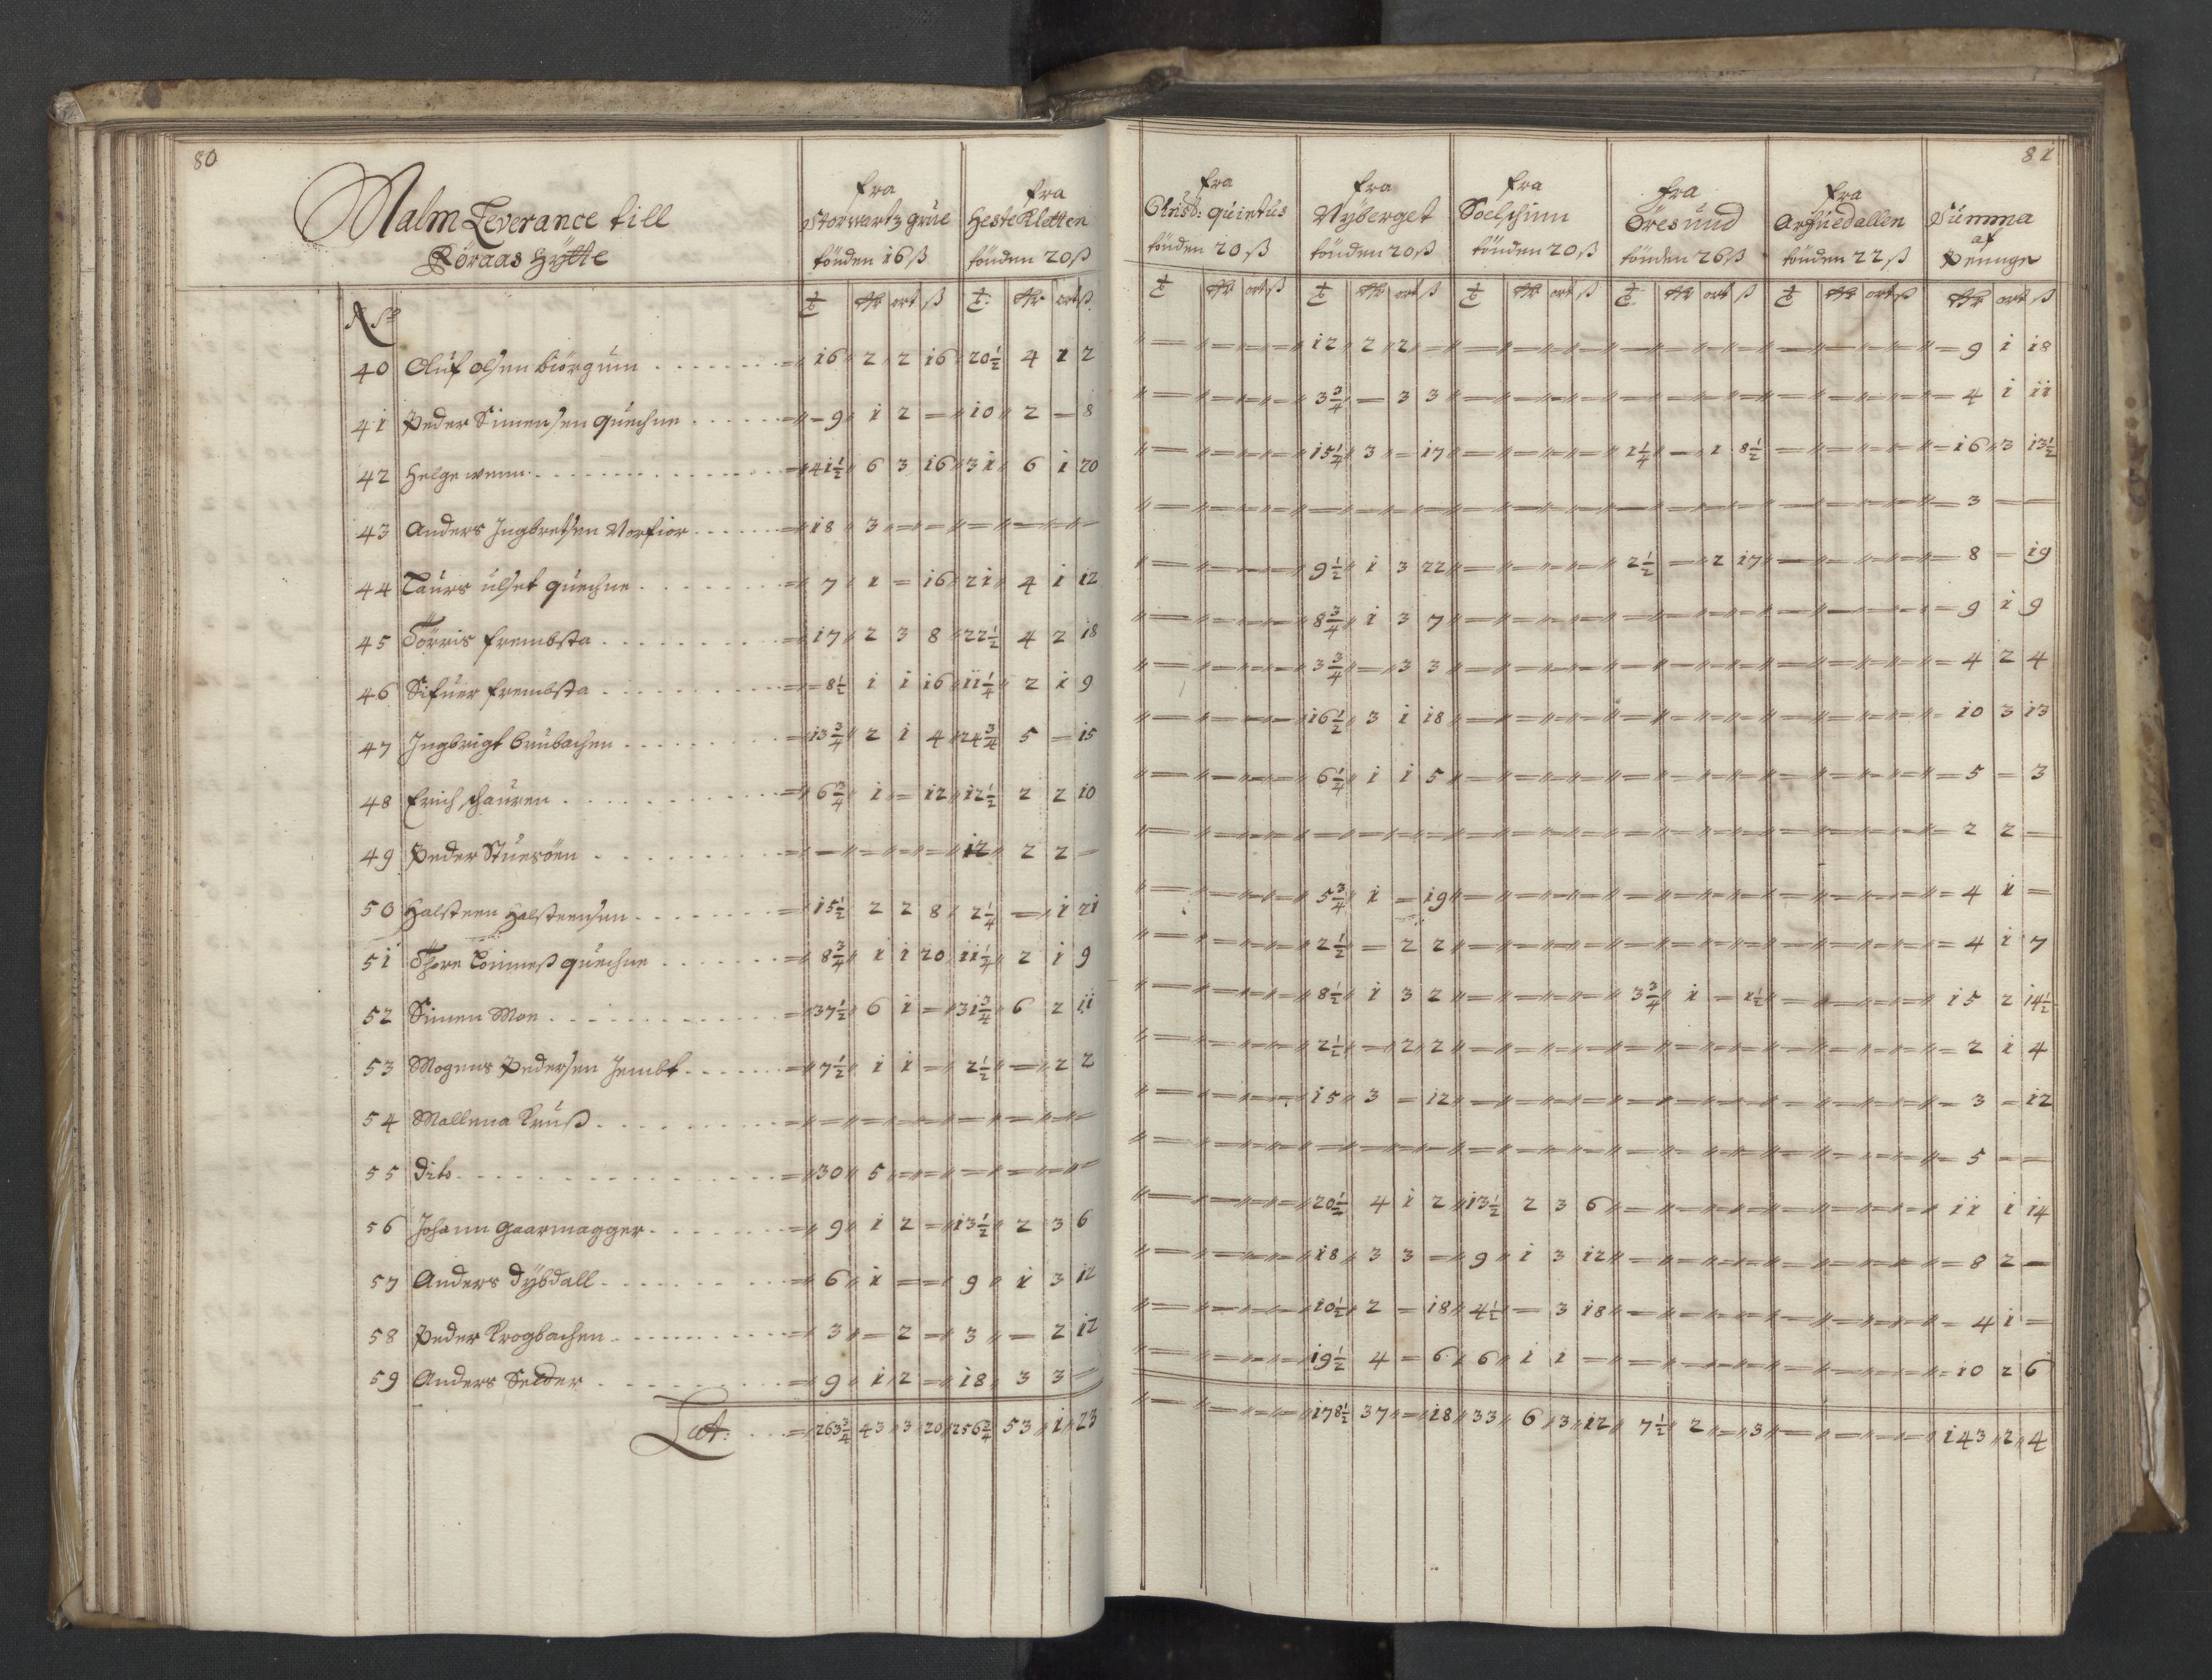 80
Malm Leverance till
Röraas Hÿtte
fra
Storvartz grue
tönden 16 ß
fra
Heste Kletten
tönden 20 ß
fra
Christ: quintus
tönden 20 ß
fra
Nÿberget
tönden 20 ß
fra
Soelschinn
tönden 20 ß
fra
Öresund
tönden 26 ß
fra
Arfuedallen
tönden 22 ß
81
Summa
af
Penge
40 Oluf olsen biörgum 16 2 2 16 20½ 4 1 2 12 2 2 — 9 1 18
41 Peder Simensen quechne 9 1 2 — 10 2 — 8 3¾ — 3 3 4 1 11
42 Helge wenn 41½ 6 3 16 31 6 1 20 15¼ 3 — 17 1¼ — 1 8½ 16 3 13½
43 Anders Ingbretsen Vorfior 18 3 — — 3 — —
44 Laurs ulset quechne 7 1 — 16 21 4 1 12 9½ 1 3 22 2½ — 2 17 8 — 19
45 Törris frembsta 17 2 3 8 22½ 4 2 18 8¾ 1 3 7 9 1 9
46 Sifuer frembsta 8½ 1 1 16 11¼ 2 1 9 3¾ — 3 3 4 2 4
47 Ingbrigt brubachen 13¾ 2 1 4 24¾ 5 — 15 16½ 3 1 18 10 3 13
48 Erich schauren 6¾ 1 — 12 12½ 2 2 10 6¼ 1 1 5 5 — 3
49 Peder Stuesöen — 12 2 2 — 2 2 —
50 Halsteen Halsteensen 15½ 2 2 8 2¼ — 1 21 5¾ 1 — 19 4 1 —
51 Thore Tönneß quechne 8¾ 1 1 20 11¼ 2 1 9 2½ — 2 2 4 1 7
52 Simen Moe 37½ 6 1 — 31¾ 6 2 11 8½ 1 3 2 3¾ 1 — 1½ 15 2 14½
53 Mogens Pedersen Jembt 7½ 1 1 — 2½ — 2 2 2½ — 2 2 2 1 4
54 Mallena Kruß — 15 3 — 12 3 — 12
55 Dito 30 5 — — 5 — —
56 Johann gaarmagger 9 1 2 — 13½ 2 3 6 20½ 4 1 2 13½ 2 3 6 11 1 14
57 Anders Dÿbdall 6 1 — — 9 1 3 12 18 3 3 — 9 1 3 12 8 2 —
58 Peder Krogbachen 3 — 2 — 3 — 2 12 10½ 2 — 18 4½ — 3 18 4 1 —
59 Anders Selder 9 1 2 — 18 3 3 — 19½ 4 — 6 6 1 1 — 10 2 6
Lat: 263¾ 43 3 20 256¾ 53 1 23 178½ 37 — 18 33 6 3 12 7½ 2 — 3 143 2 4